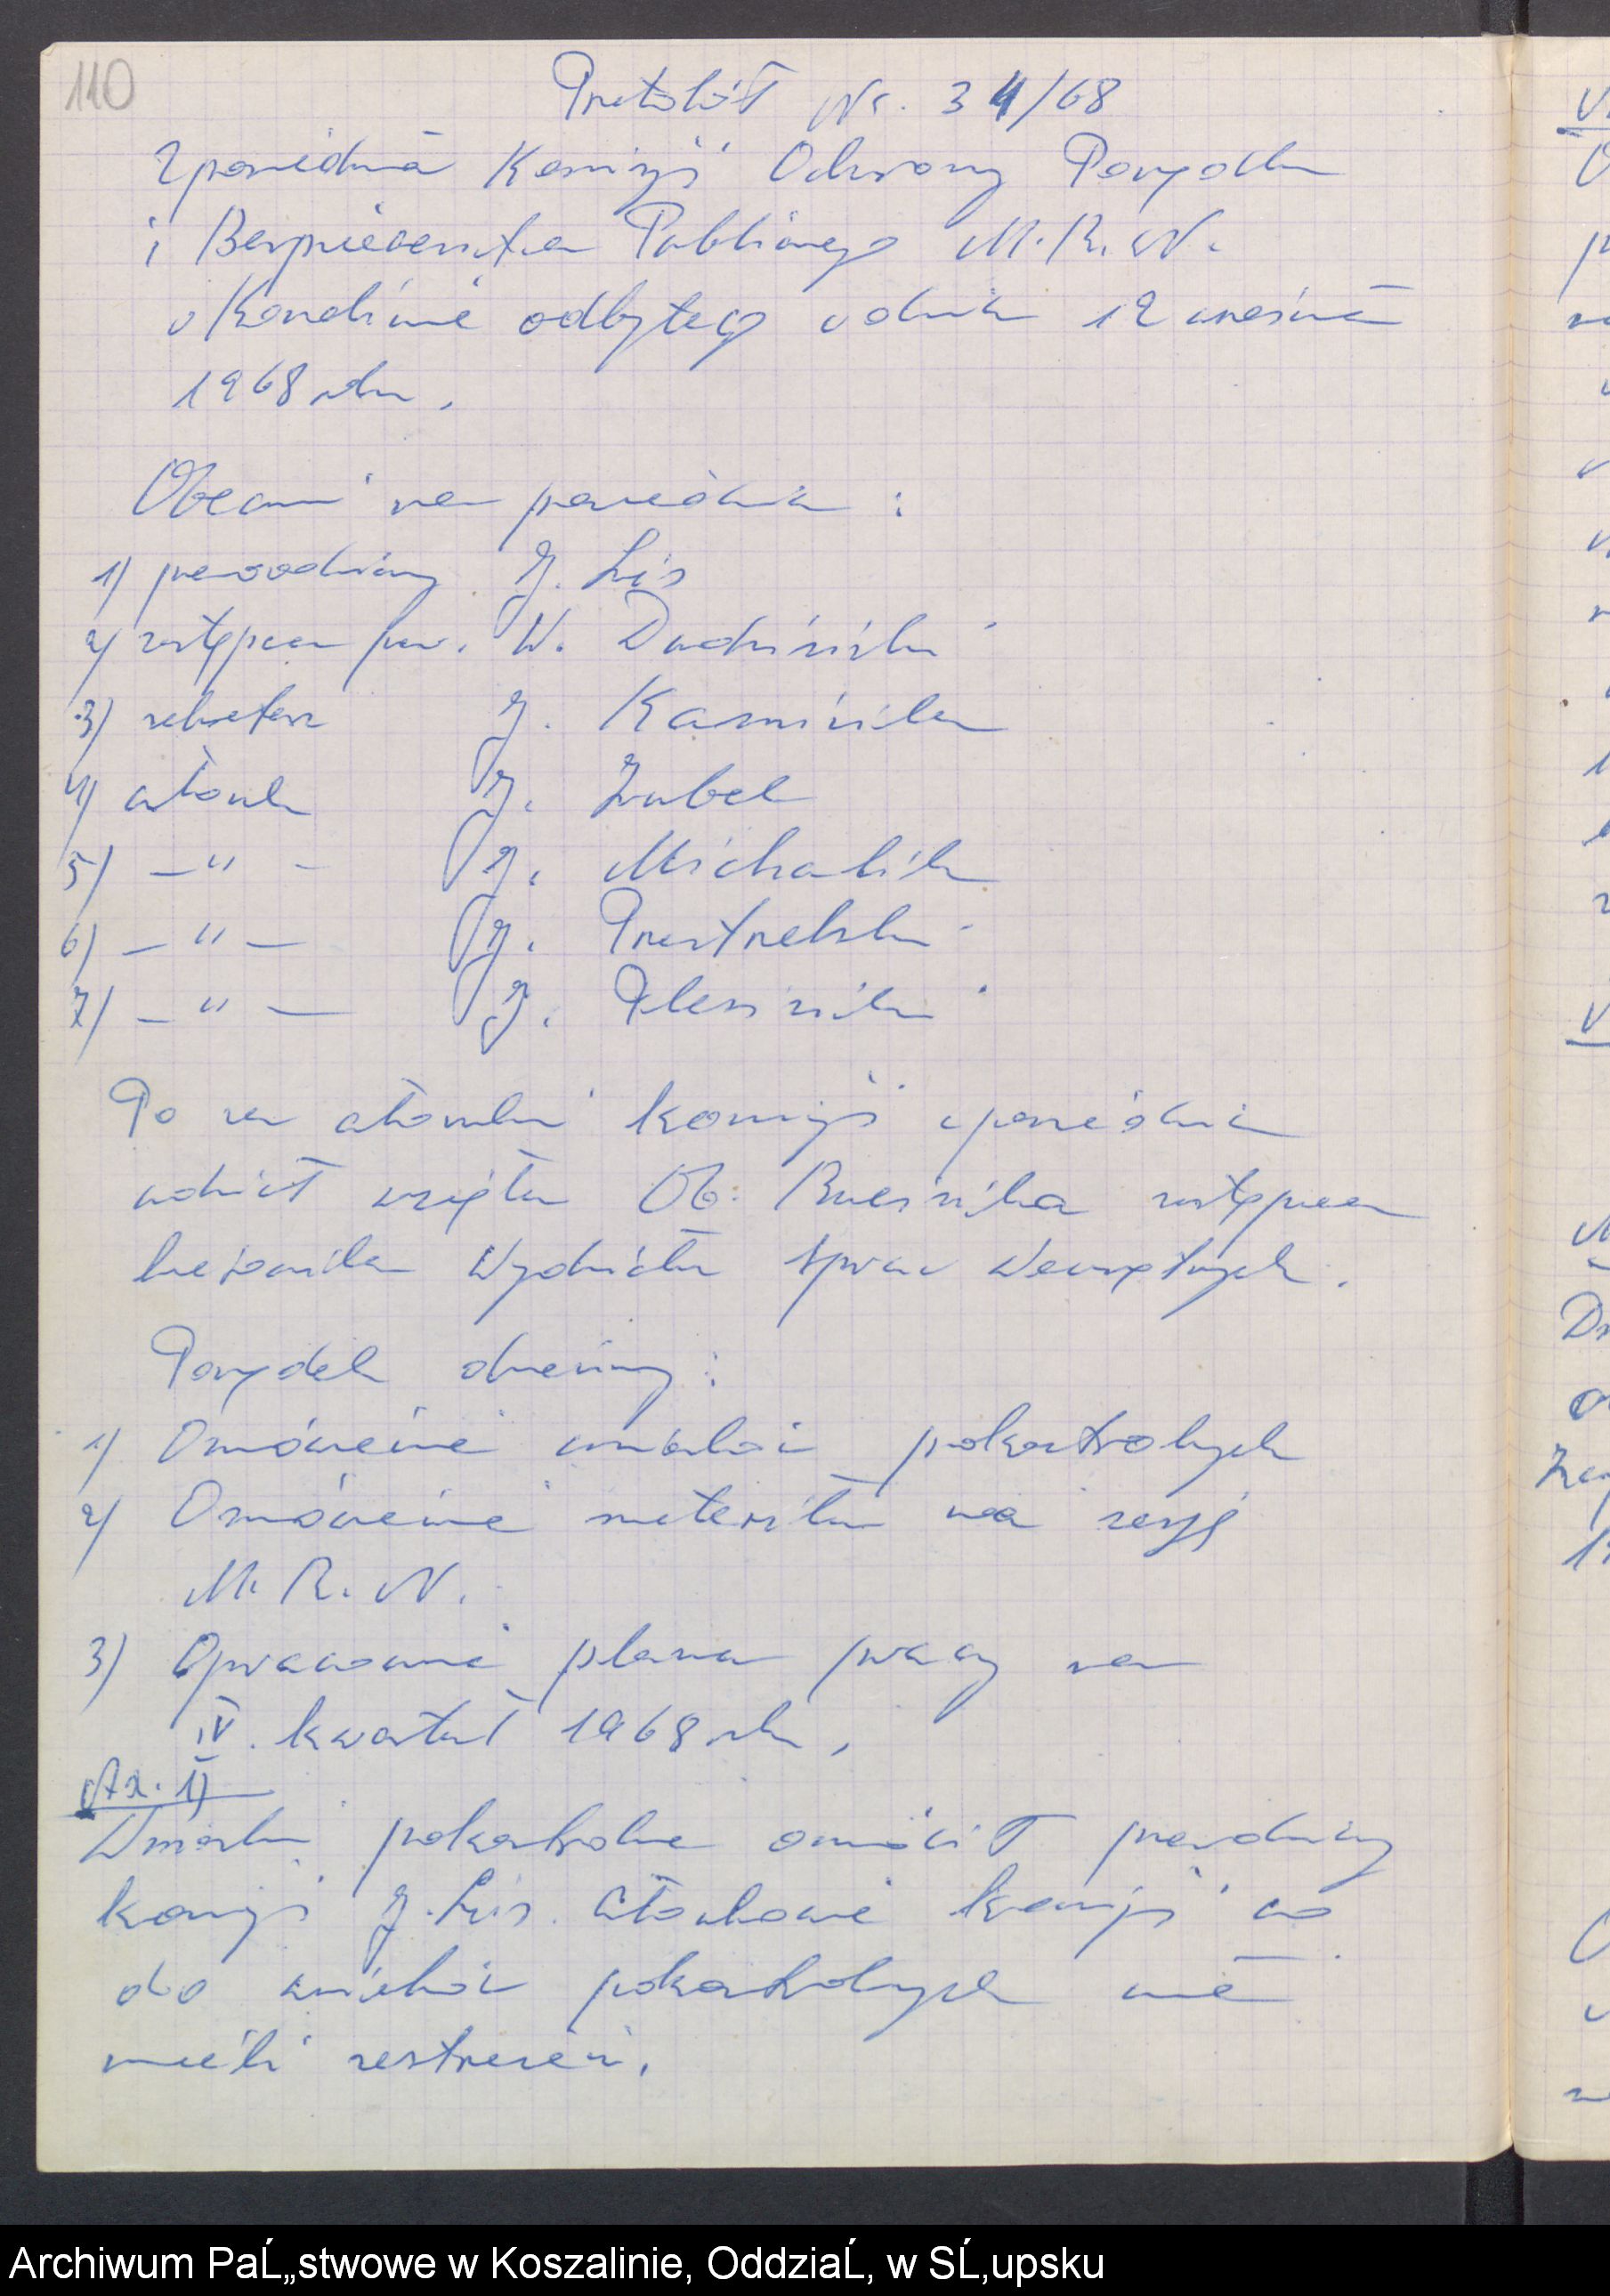 110
Protokół Nr. 34/68
z posiedzenia Komisji Ochrony Porządku
i Bezpieczeństwa Publicznego M.R.N.
w odbytego w dniu 12 września
1968 roku.
Obecni na posiedzeniu :
1) przewodniczący J. Lis
2) zastępca przew. W. Dudziński
3) sekretarz J. Kamińska
4) członek J. Zubel
5) — " — J. Michalik
6) — " — J.
7) — " — J.
Po za członkami komisji w posiedzeniu
udział wzięła Ob. zastępca
kierownika Wydziału Spraw Wewnętrznych.
Porządek dzienny :
1) Omówienie wniosków pokontrolnych
2) Omówienie materiału na sesję
M. R. N.
3) Opracowanie planu pracy na
IV. kwartał 1968 roku.
Ad. 1)
Wnioski pokontrolne omówił przewodniczący
komisji J. Lis. Członkowie komisji co
do wniosków pokontrolnych nie
mieli zastrzeżeń.
Archiwum PaĹ„stwowe w Koszalinie, OddziaĹ‚ w SĹ‚upsku